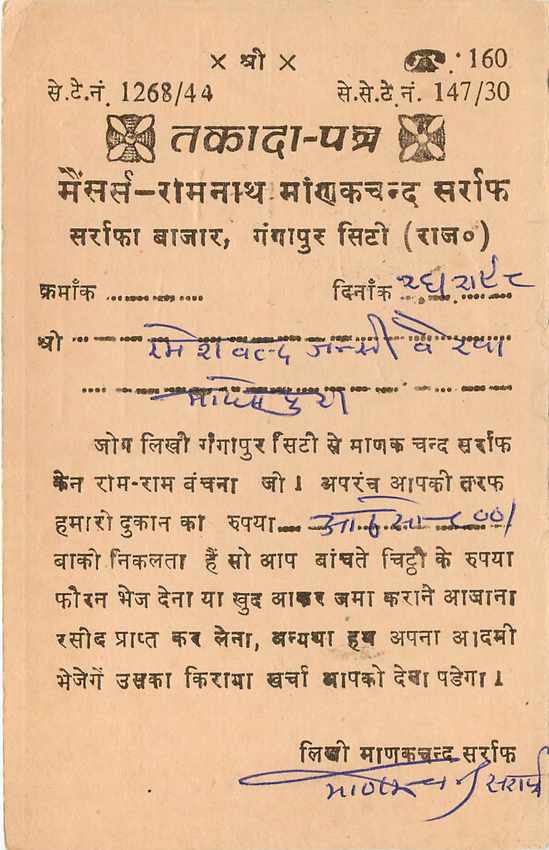 × श्री × ☎ : 160
से.टे.नं. 1268/44 से.से.टे.नं. 147/30
तकादा-पत्र
मैसर्स-रामनाथ माणकचन्द सर्राफ
सर्राफा बाजार, गंगापुर सिटी (राज०)
क्रमाँक .................. दिनाँक
श्री रमेश वल्द
जोग लिखी गंगापुर सिटी से माणक चन्द सर्राफ
केन राम-राम बंचना जी । अपरंच आपकी तरफ
हमारी दुकान का रुपया
बाकी निकलता हैं सो आप बांचते चिट्ठी के रुपया
फौरन भेज देना या खुद आकर जमा कराने आजाना
रसीद प्राप्त कर लेना, अन्यथा हम अपना आदमी
भेजेगें उसका किराया खर्चा आपको देना पडेगा ।
लिखी माणकचन्द सर्राफ
माणकचन्द सर्राफ